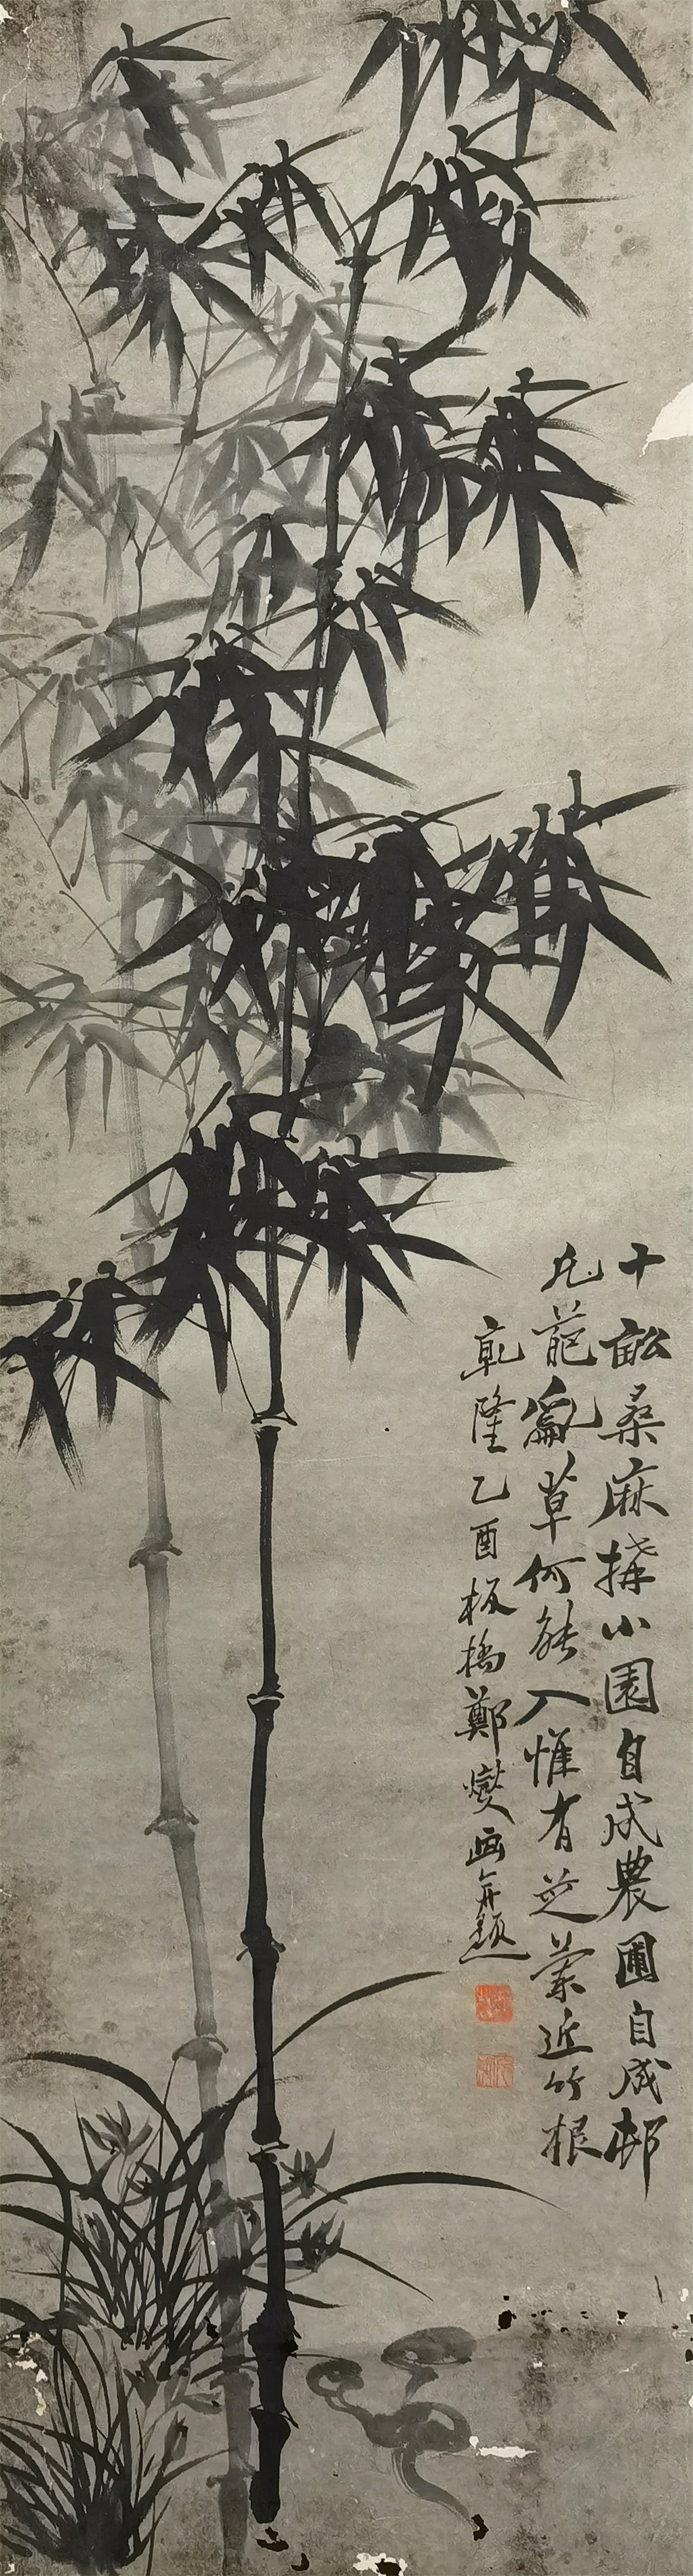 十畝桑麻搆小園自成農圃自成邨
凡葩亂草何能入惟有芝蘭近竹根
乾隆乙酉板橋鄭燮画并題